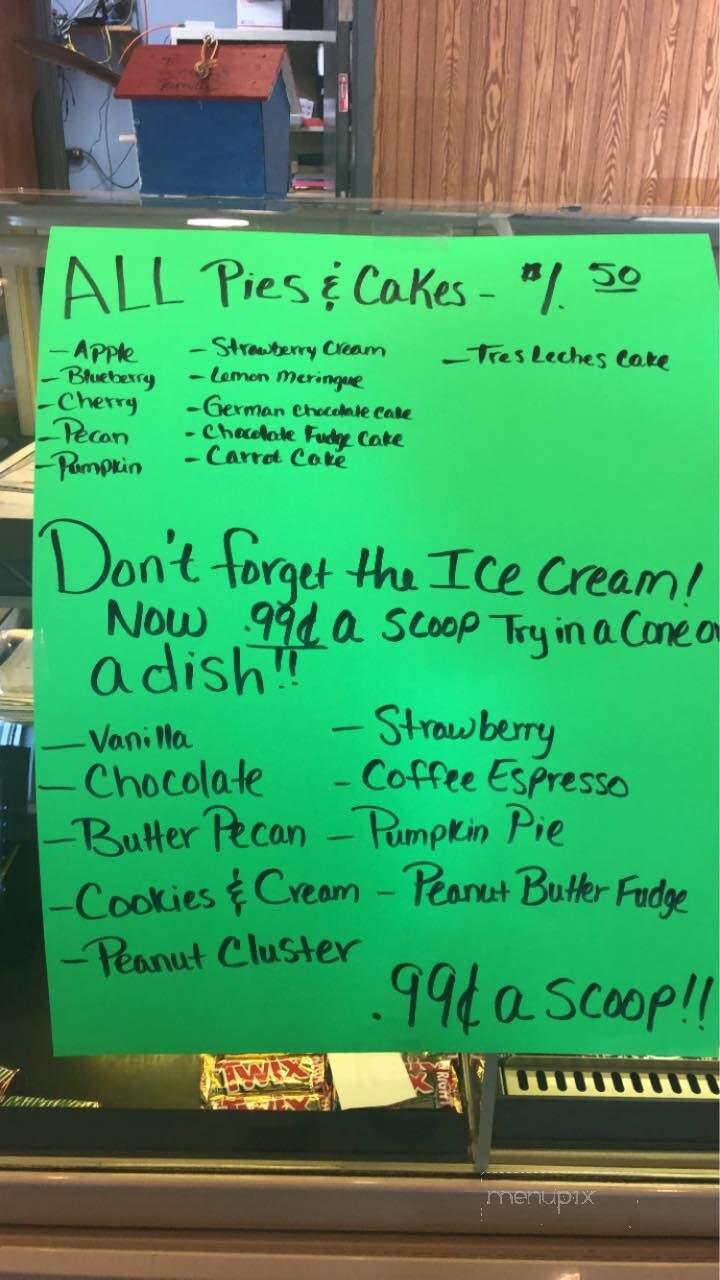 ALL Pies & Cakes - $1.50
- Apple
- Blueberry
- Cherry
- Pecan
- Pumpkin
- Strawberry Cream
- Lemon Meringue
- German Chocolate Cake
- Chocolate Fudge Cake
- Carrot Cake
- Tres Leches Cake
Don't forget the Ice Cream!
Now .99¢ a scoop Try in a Cone or
a dish!!
- Vanilla
- Chocolate
- Butter Pecan
- Cookies & Cream
- Peanut Cluster
- Strawberry
- Coffee Espresso
- Pumpkin Pie
- Peanut Butter Fudge
.99¢ a scoop!!
TWIX
TWIX
Right
menupix